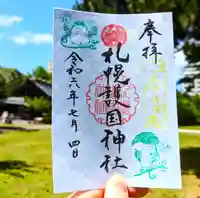 奉拝
札幌護国神社
令和六年七月四日